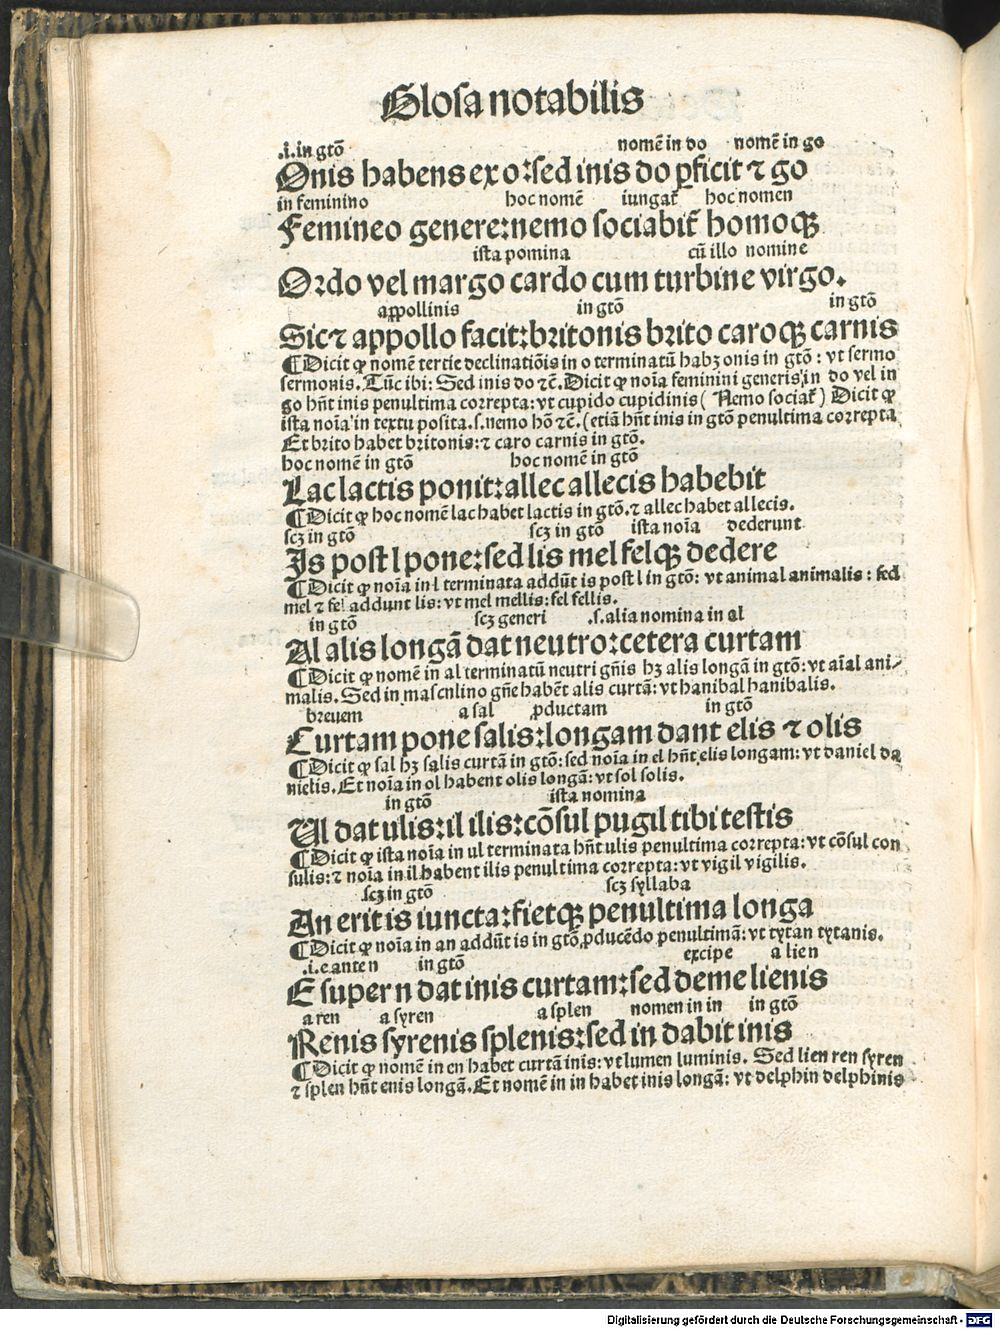 Glosa notabilis
.i. in gtō nomē in do nomē in go
Onis habens ex o: sed inis do ꝑficit ⁊ go
in feminino hoc nomē iungat̃ hoc nomen
Femineo genere: nemo sociabit̃ homoqꝫ
ista pomina cū illo nomine
Ordo vel margo cardo cum turbine virgo.
appollinis in gtō in gtō
Sic ⁊ appollo facit: britonis brito caroqꝫ carnis
¶ Dicit ꝙ nomē tertie declinatiōis in o terminatū habꝫ onis in gtō: vt sermo
sermonis. Tūc ibi: Sed inis do ⁊c̄. Dicit ꝙ noīa feminini generis in do vel in
go hn̄t inis penultima correpta: vt cupido cupidinis (Nemo sociat̃) Dicit ꝙ
ista noīa in textu posita .s. nemo hō ⁊c̄. (etiā hn̄t inis in gtō penultima correpta
Et brito habet britonis: ⁊ caro carnis in gtō.
hoc nomē in gtō hoc nomē in gtō
Lac lactis ponit: allec allecis habebit
¶ Dicit ꝙ hoc nomē lac habet lactis in gtō. ⁊ allec habet allecis.
scꝫ in gtō scꝫ in gtō ista noīa dederunt
Is post l pone: sed lis mel felqꝫ dedere
¶ Dicit ꝙ noīa in l terminata addūt is post l in gtō: vt animal animalis: sed
mel ⁊ fel addunt lis: vt mel mellis: fel fellis.
in gtō scꝫ generi .s. alia nomina in al
Al alis longā dat neutro: cetera curtam
¶ Dicit ꝙ nomē in al terminatū neutri gn̄is hꝫ alis longā in gtō: vt aīal ani⸗
malis. Sed in masculino gn̄e habēt alis curtā: vt hanibal hanibalis.
breuem a sal ꝓductam in gtō
Curtam pone salis: longam dant elis ⁊ olis
¶ Dicit ꝙ sal hꝫ salis curtā in gtō: sed noīa in el hn̄t elis longam: vt daniel da
nielis. Et noīa in ol habent olis longā: vt sol solis.
in gtō ista nomina
Ul dat ulis: il ilis: cōsul pugil tibi testis
¶ Dicit ꝙ ista noīa in ul terminata hn̄t ulis penultima correpta: vt cōsul con
sulis: ⁊ noīa in il habent ilis penultima correpta: vt vigil vigilis.
scꝫ in gtō scꝫ syllaba
An erit is iuncta: fietqꝫ penultima longa
¶ Dicit ꝙ noīa in an addūt is in gtō ꝓducēdo penultimā: vt tytan tytanis.
.i. e anten in gtō excipe a lien
E super n dat inis curtam: sed deme lienis
a ren a syren a splen nomen in in in gtō
Renis syrenis splenis: sed in dabit inis
¶ Dicit ꝙ nomē in en habet curtā inis: vt lumen luminis. Sed lien ren syren
⁊ splen hn̄t enis longā. Et nomē in in habet inis longā: vt delphin delphinis
Digitalisierung gefördert durch die Deutsche Forschungsgemeinschaft - DFG